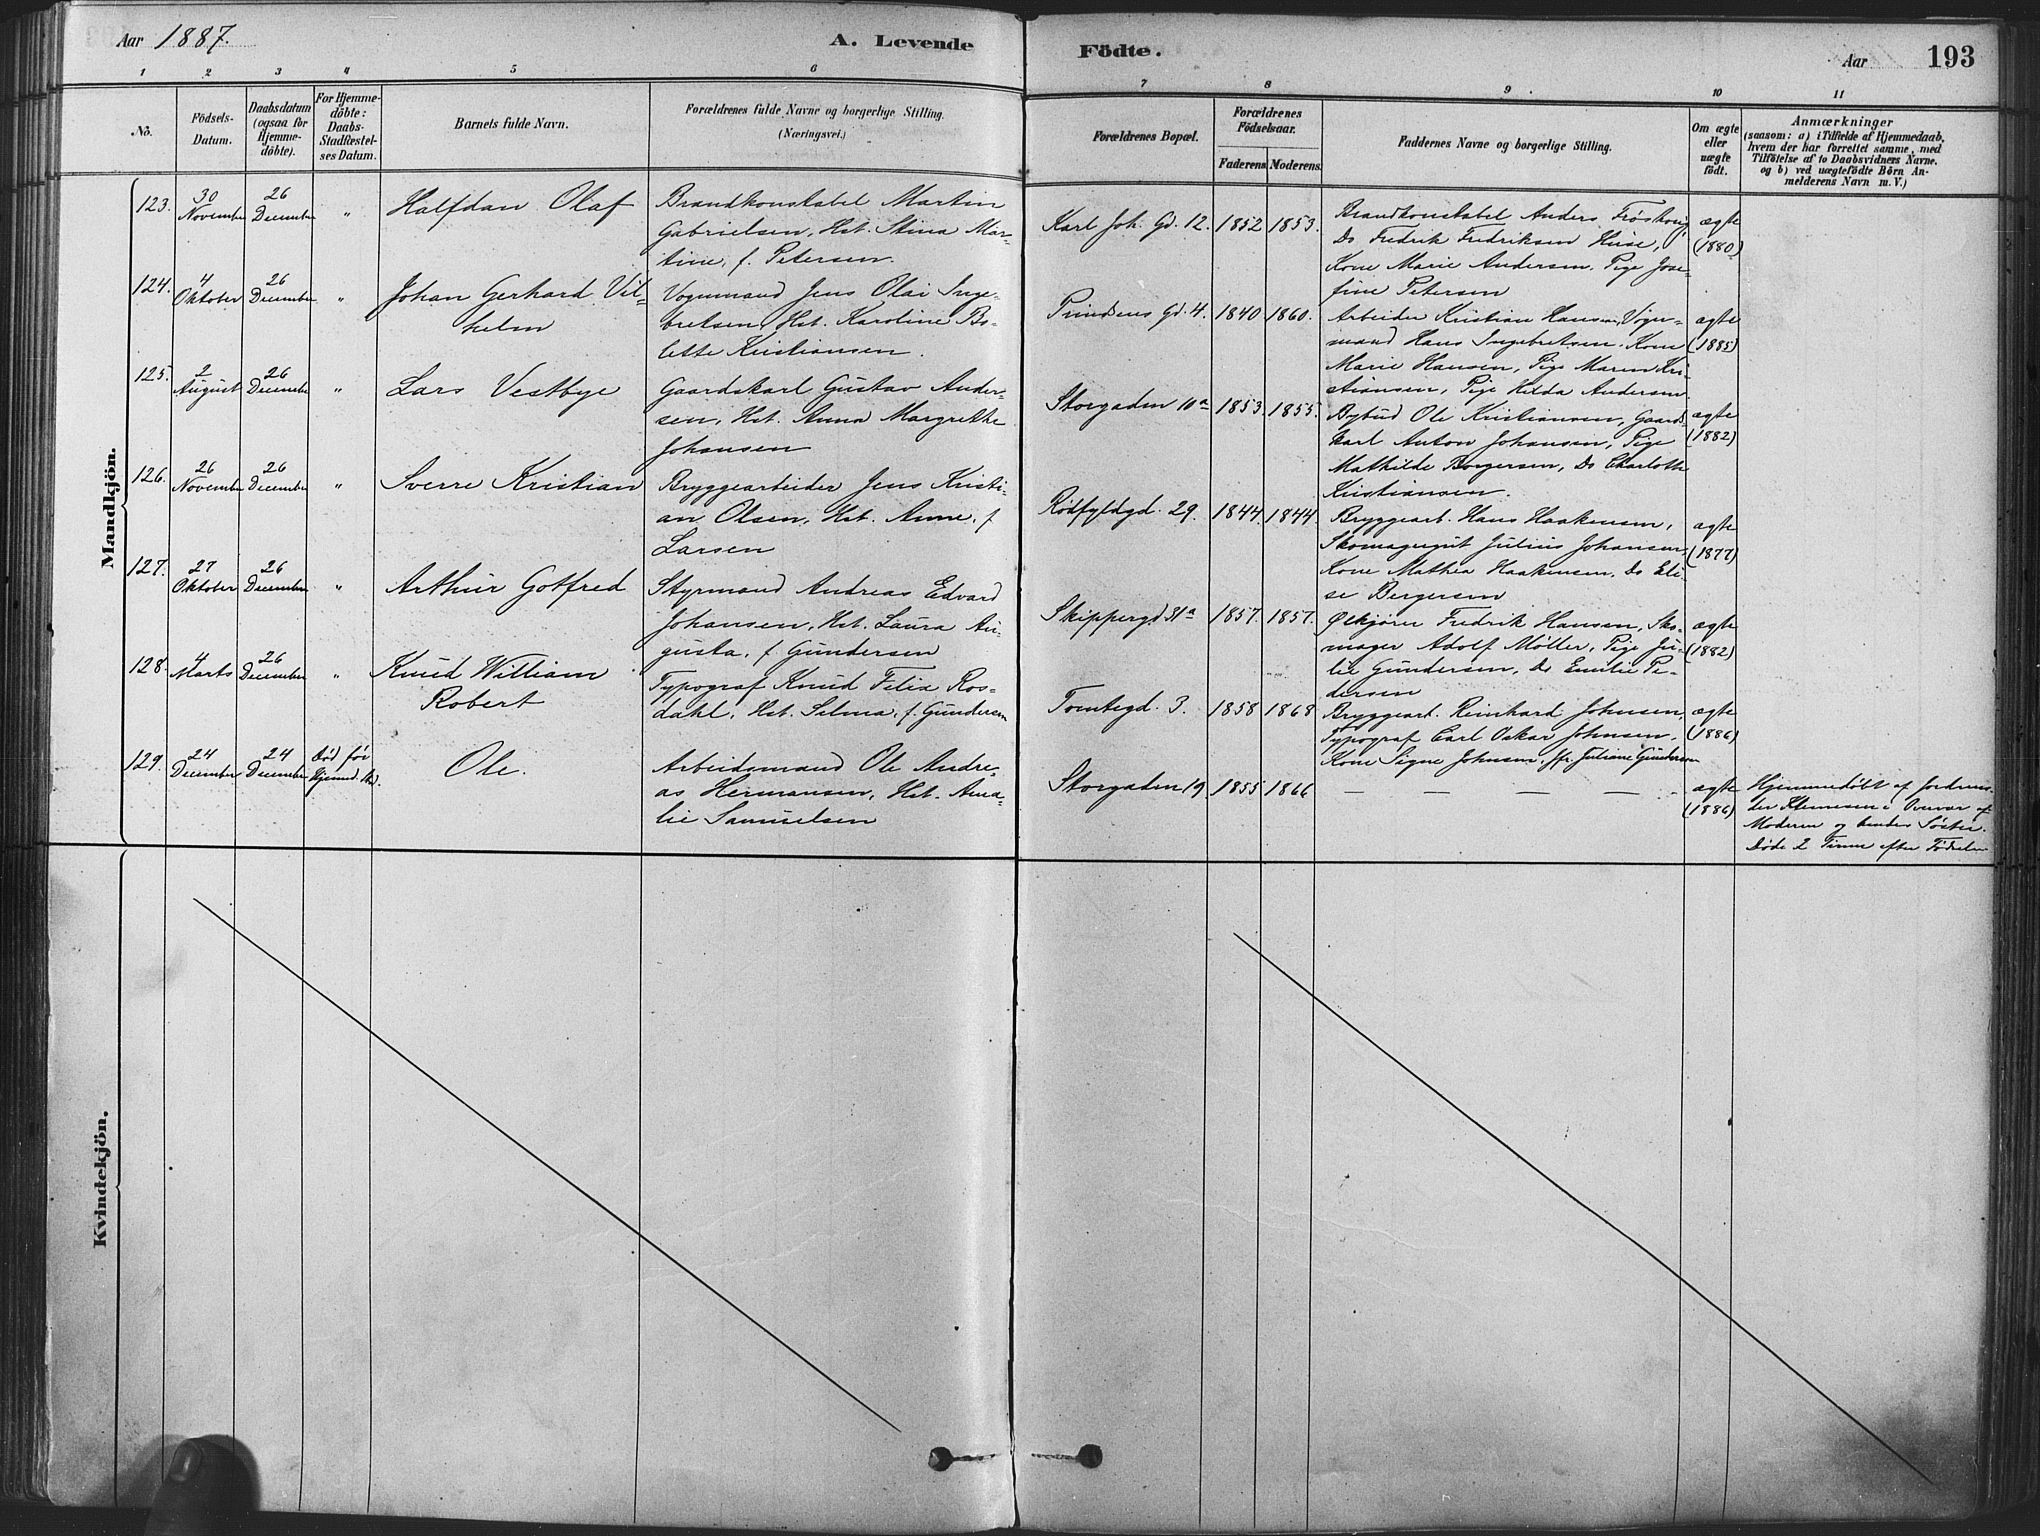 Aar 1887.
A. Levende
Födte.
Aar
193
1 2 3 4 5 6
7 8 9 10 11
No.
Födsels-
Datum.
Daabsdatum
(ogsaa for
Hjemme-
döbte).
For Hjemme-
döbte:
Daabs-
Stadfæstel-
ses Datum.
Barnets fulde Navn.
Forældrenes fulde Navne og borgerlige Stilling.
(Næringsvei.)
Forældrenes Bopæl.
Forældrenes
Födselsaar.
Faderens
Moderens.
Faddernes Navne og borgerlige Stilling.
Om ægte
eller
uægte
födt.
Anmærkninger
(saasom: a) i Tilfælde af Hjemmedaab,
hvem der har forrettet samme, med
Tilföielse af to Daabsvidners Navne,
og b) ved uægtefödte Börn An-
melderens Navn m. V.)
Mandkjön.
123.
30
November
26
December
"
Halfdan Olaf
Brandkonstabel Martin
Gabrielsen, Hst. Stina Mar-
tine, f. Petersen.
Karl Joh. Gd. 12.
1852
1853.
Brandkonstabel Anders
Do Fredrik Fredriksen Huse,
Kone Marie Andersen. Pige Jose-
fine Petersen
ægte
(1880)
124.
4
Oktober
26
December
"
Johan Gerhard Vil-
helm
Vognmand Jens Olai Inge-
bretsen, Hst. Karoline Bo-
lette Kristiansen.
Prindsens Gd. 4.
1840
1860.
Arbeider Kristian Hansen, Vogn-
mand Hans Ingebretsen. Kone
Marie Hansen, Pige Maren Kri-
stiansen, Pige Hilda Andersen
ægte
(1885)
125.
2
August
26
December
"
Lars Vestbye
Gaardskarl Gustav Ander-
sen, Hst. Anna Margrethe
Johansen
Storgaden 10a
1853
1855.
Bybud Ole Kristiansen, Gaards-
karl Anton Johansen, Pige
Mathilde Borgersen, Do Charlotte
Kristiansen.
ægte
(1882)
126.
26
November
26
December
"
Sverre Kristian
Bryggearbeider Jens Kristi-
an Olsen, Hst. Anne, f
Larsen
Rødfyldgd. 29.
1844
1844
Bryggearb. Hans Haakensen,
Skomagersvt Julius Johansen
Kone Mathea Haakensen, Do Eli-
se Bergersen
ægte
(1877)
127.
27
Oktober
26
December
"
Arthur Gotfred
Styrmand Andreas Edvard
Johansen, Hst. Laura Au-
gusta, f. Gundersen
Skippergd 31a
1857.
1857.
Ølkjører Fredrik Hansen, Sko-
mager Adolf Møller, Pige Ju-
lie Gundersen, Do Emilie Pe-
dersen
ægte
(1882)
128.
4
Marts
26
December
"
Knud William
Robert
Typograf Knud Felix Ros-
dahl, Hst. Selma, f. Gundersen
Tomtegd. 3.
1858
1868
Bryggearb. Reinhard Johnsen,
Typograf Carl Oskar Johnsen,
Kone Signe Johnsen, Juliane Gundersen
ægte
(1886)
129.
24
December
24
December
Død før
Hjemmed. Std.
Ole.
Arbeidsmand Ole Andre-
as Hermansen, Hst. Ama-
lie Samuelsen
Storgaden 19.
1855
1866
— — — — -
ægte
(1886)
Hjemmedøbt af Jordemo-
der Klemesen i Overvær af
Moderen og hendes Søster.
Døde 2 Timer efter Fødselen
Kvindekjön.